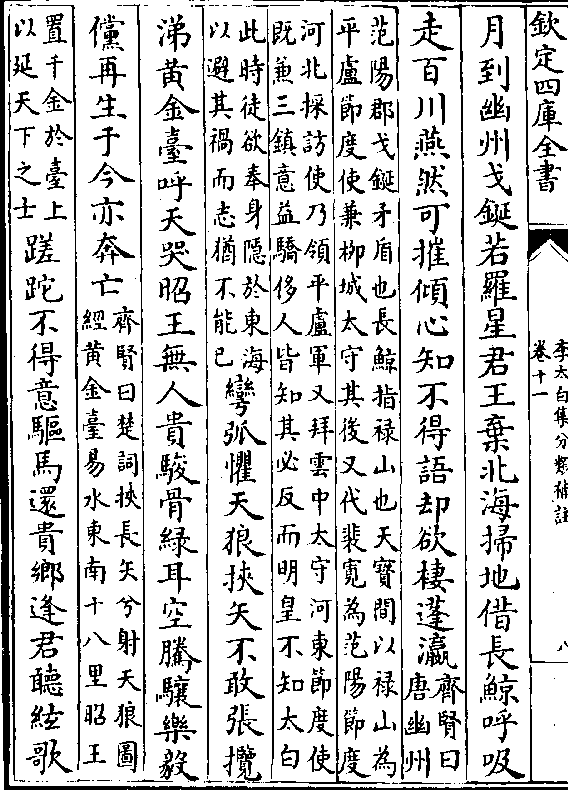 欽定四庫全書
李太白集分類補註
卷十一
八
月到幽州戈鋋若羅星君王棄北海掃地借長鯨呼吸
走百川燕然可摧傾心知不得語却欲棲蓬瀛
齊賢曰
唐幽州
范陽郡戈鋋矛盾也長鯨指禄山也天寶間以禄山為
平盧節度使兼柳城太守其後又代裴寛為范陽節度
河北採訪使乃領平盧軍又拜雲中太守河東節度使
既兼三鎮意益驕侈人皆知其必反而明皇不知太白
此時徒欲奉身隠於東海
以避其禍而志猶不能已
彎弧懼天狼挾矢不敢張攬
涕黄金臺呼天哭昭王無人貴駿骨緑耳空騰驤樂毅
儻再生于今亦奔亡
齊賢曰楚詞挾長矢兮射天狼圖
經黄金臺易水東南十八里昭王
置千金於臺上
以延天下之士
蹉跎不得意驅馬還貴鄉逢君聽絃歌